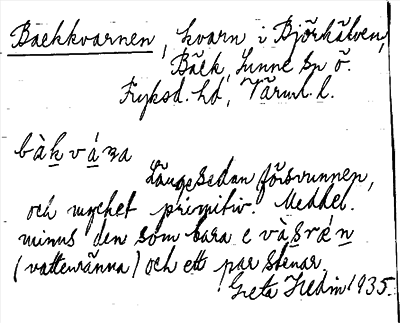 Backkvarnen, kvarn i Björkälven,
Bäck, Sunne sn ö.
Fryksd. hd, Värml. l.
bàk vá na
Länge sedan försvunnen,
och mycket primitiv. Meddel.
minns den som bara e vàsrǽn
(vattenränna) och ett par stenar
Greta Hedin 1935.